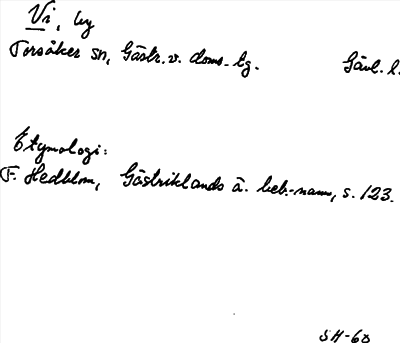 Vi, by
Torsåker sn, Gästr. v. doms. tg. Gävl. l.
Etymologi:
F. Hedblom, Gästriklands ä. beb.-namn, s. 123.
SH-60